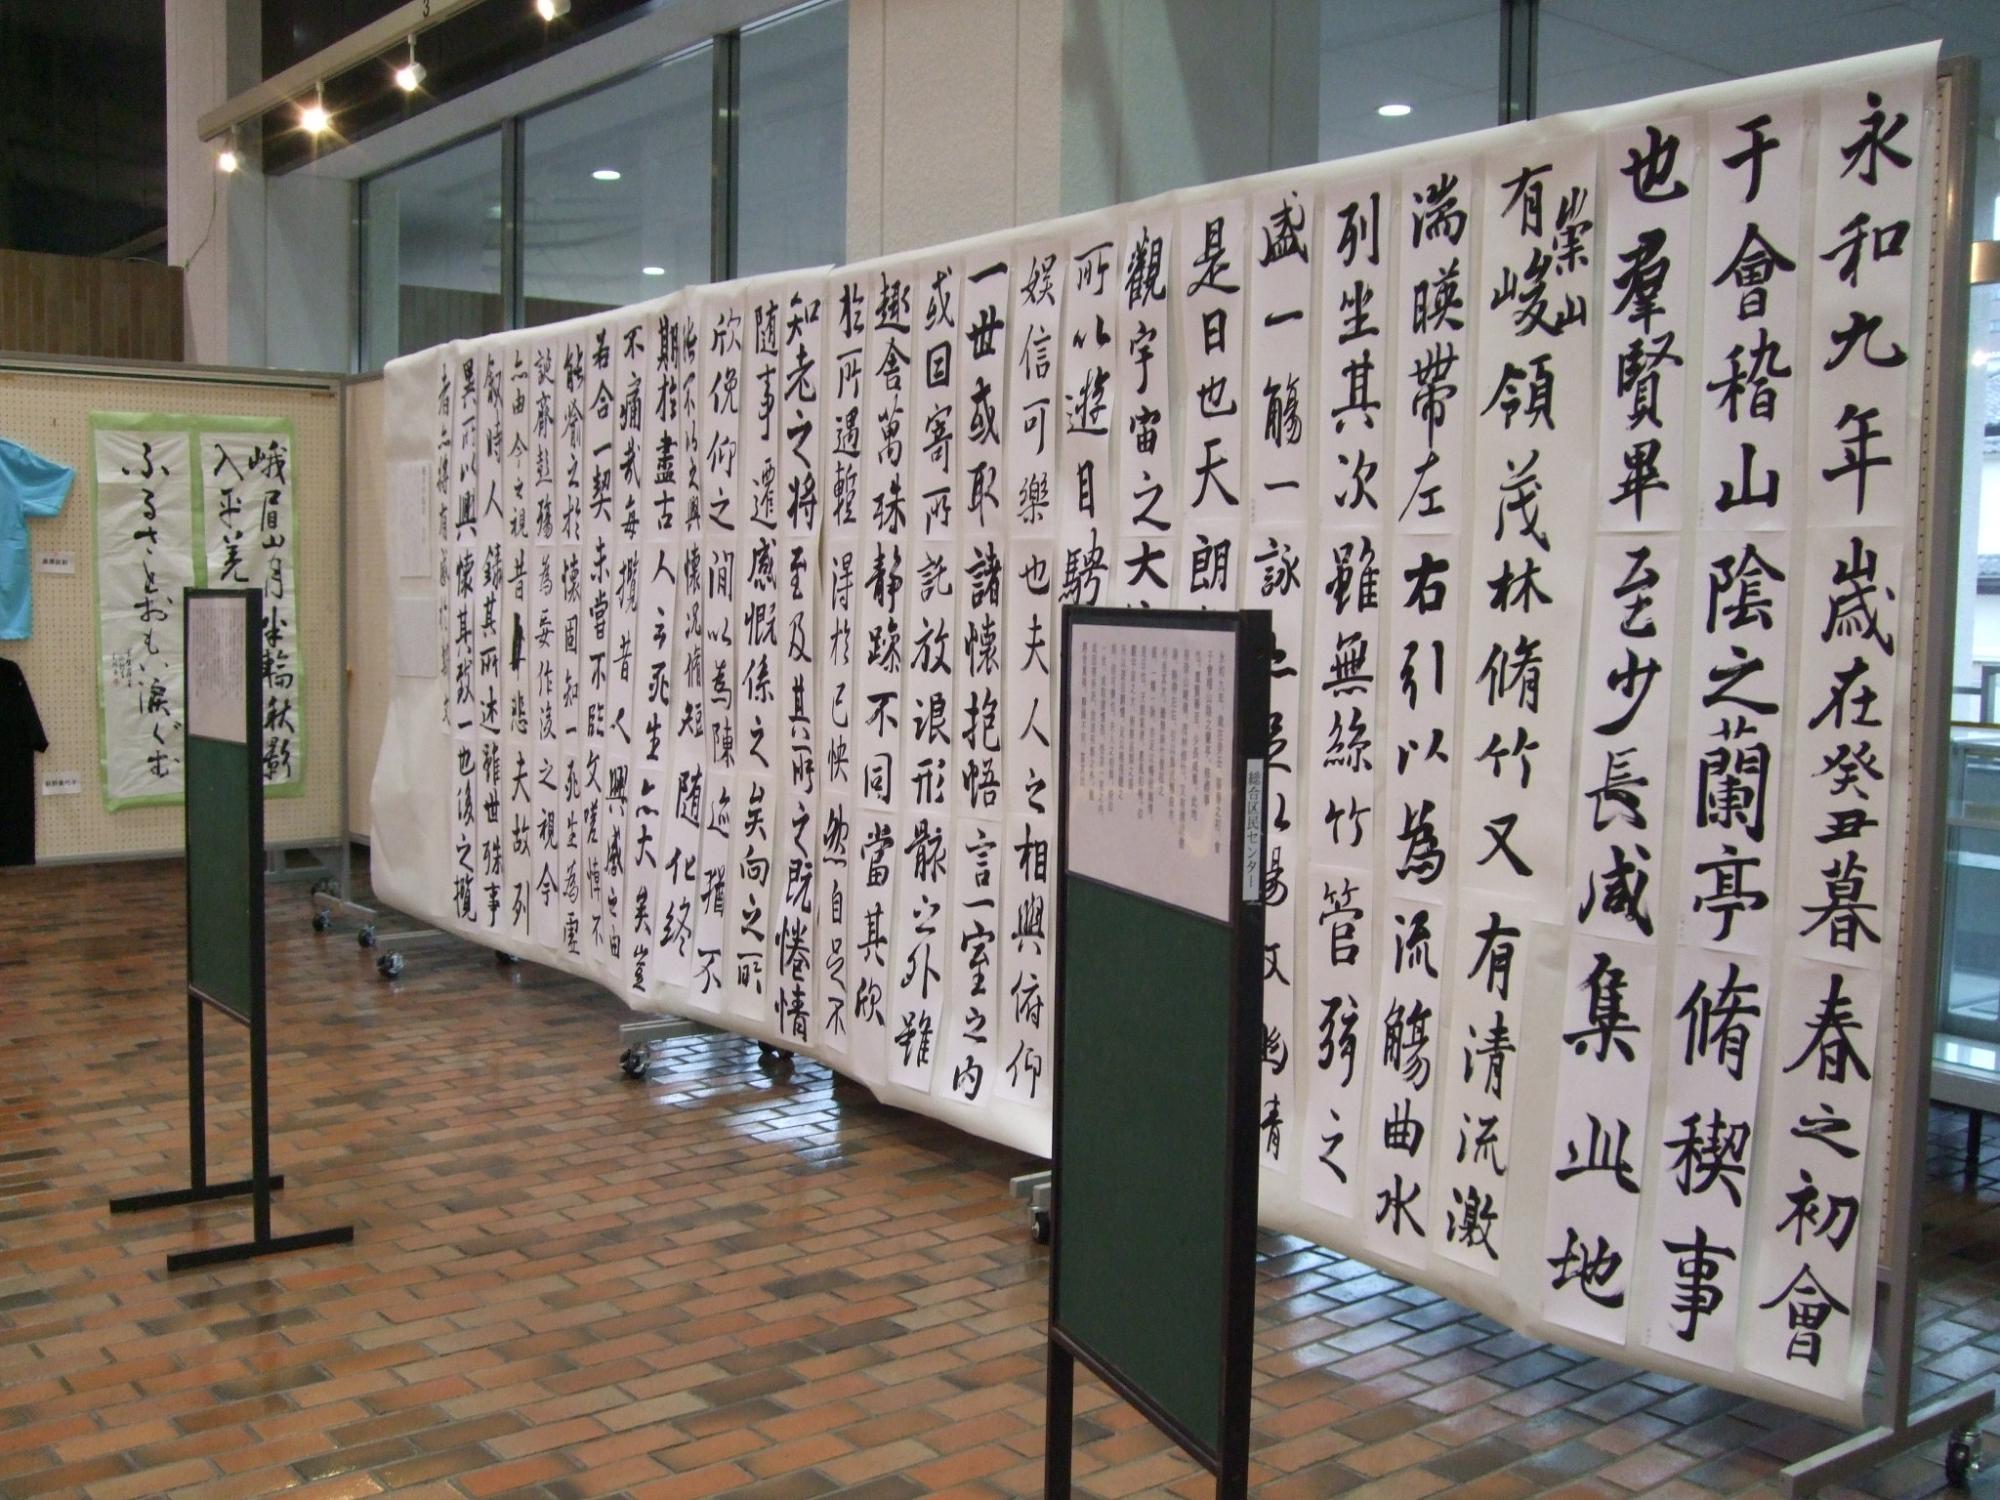 永和九年歲在癸丑暮春之初會
于會稽山陰之蘭亭脩稧事
也羣賢畢至少長咸集此地
有峻領茂林脩竹又有清流激
崇山
湍暎帶左右引以為流觴曲水
列坐其次雖無絲竹管弦之
盛一觴一詠
是日也天朗
觀宇宙之大
所以遊目騁
娱信可樂也夫人之相與俯仰
一世或取諸懷抱悟言一室之内
或因寄所託放浪形骸之外雖
趣舎萬殊静躁不同當其欣
於所遇蹔得於己怏然自足不
知老之將至及其所之既惓情
随事遷感慨係之矣向之所
欣俛仰之閒以為陳迹猶不
能不以之興懷況脩短随化終
期於盡古人云死生亦大矣豈
不痛哉每攬昔人興感之由
若合一契未嘗不臨文嗟悼不
能喻之於懷固知一死生為虚
誕齊彭殤為妄作後之視今
亦由今之視昔悲夫故列
叙時人錄其所述雖世殊事
異所以興懷其致一也後之攬
者亦將有感於斯文
総合区民センター
峨眉山月半輪秋影
入平羌
ふるさとおもい涙ぐむ